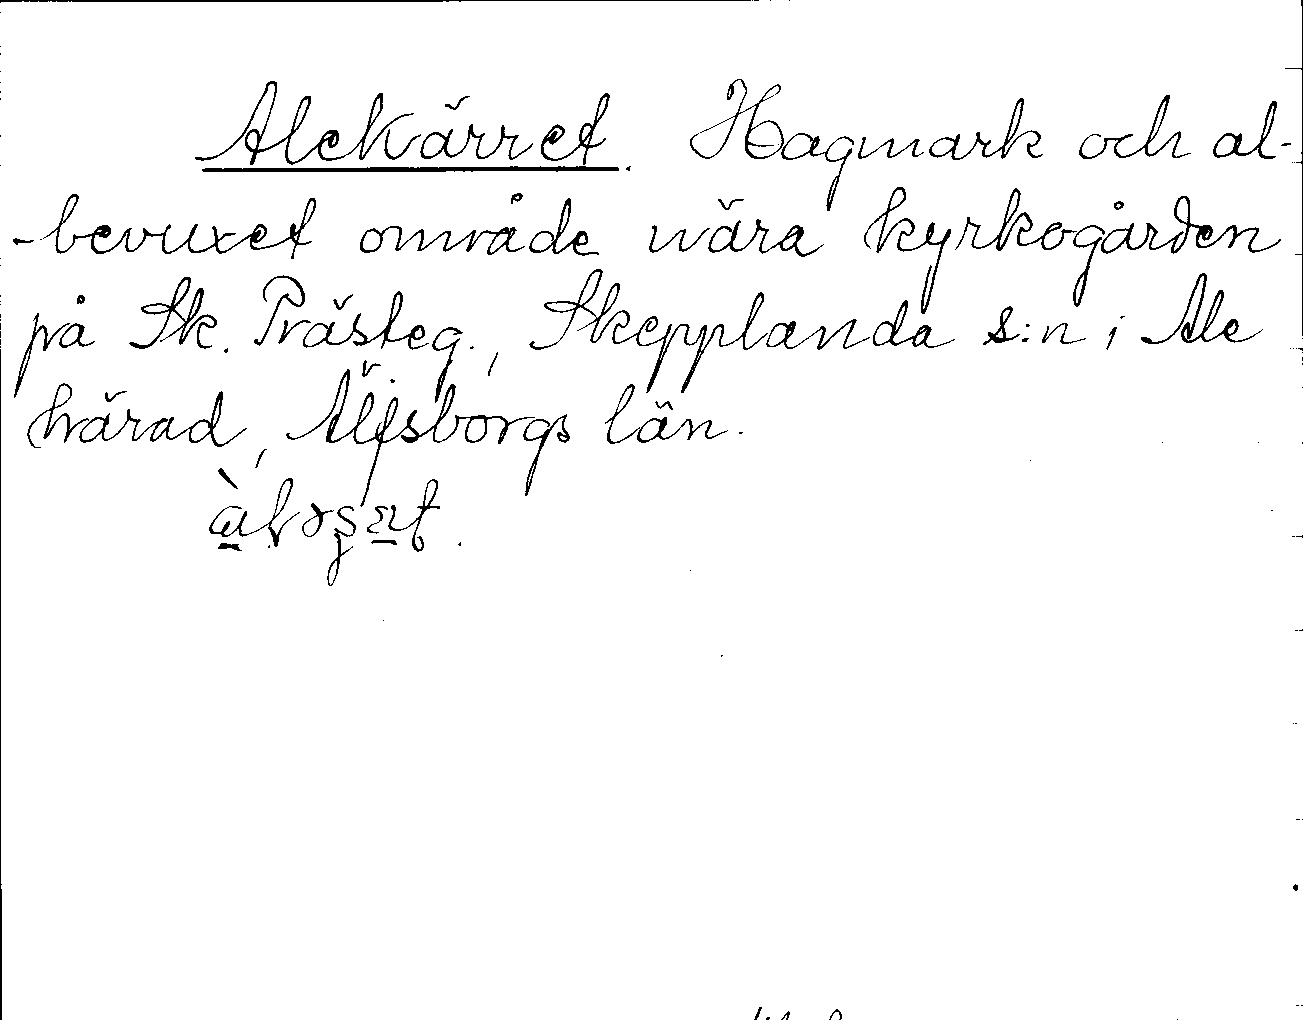 Alekärret. Hagmark och al-
-bevuxet område nära kyrkogården
på Sk. Prästeg., Skepplanda s:n i Ale
härad, Älfsborgs län.